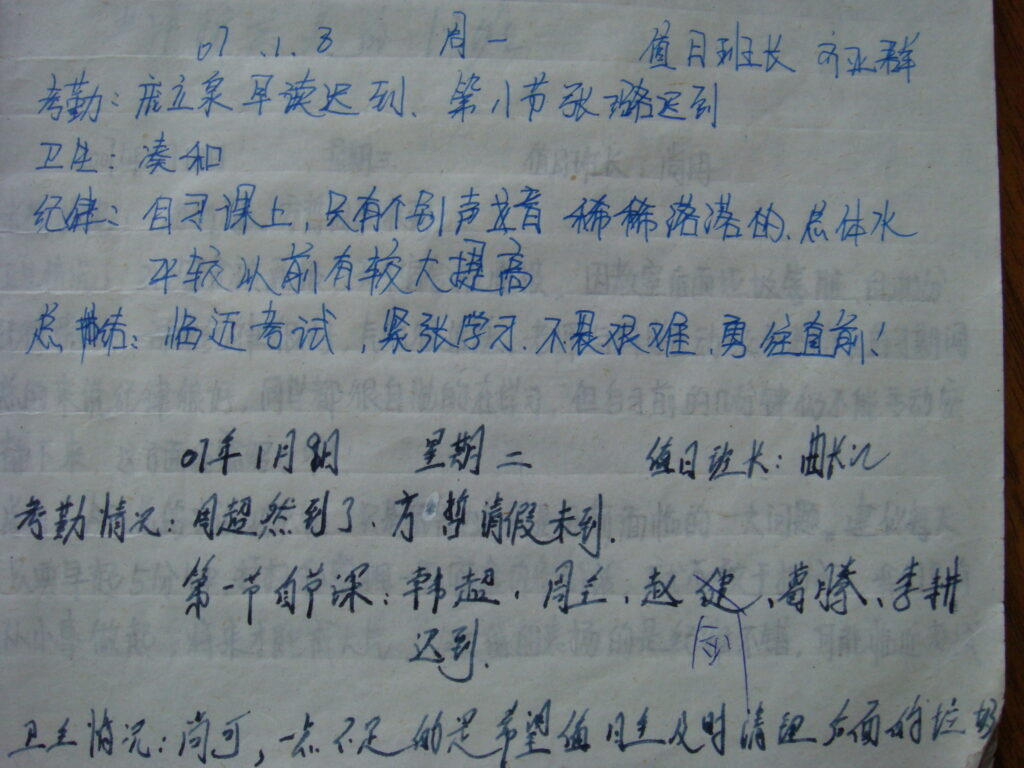 07.1.8 周一 值日班长 齐亚群
考勤：唐立泉早读迟到、第八节张璐迟到
卫生：凑和
纪律：自习课上，只有个别声音稀稀落落的、总体水
平较以前有较大提高
总结：临近考试，紧张学习、不畏艰难、勇往直前！
07年1月9日 星期二 值日班长：曲长
考勤情况：周超然到了、方哲请假未到.
第一节自节课：韩超、周兰、赵健、葛腾、李耕
迟到.
剑
卫生情况：尚可，一点不足的是希望值日生及时清理后面的垃圾